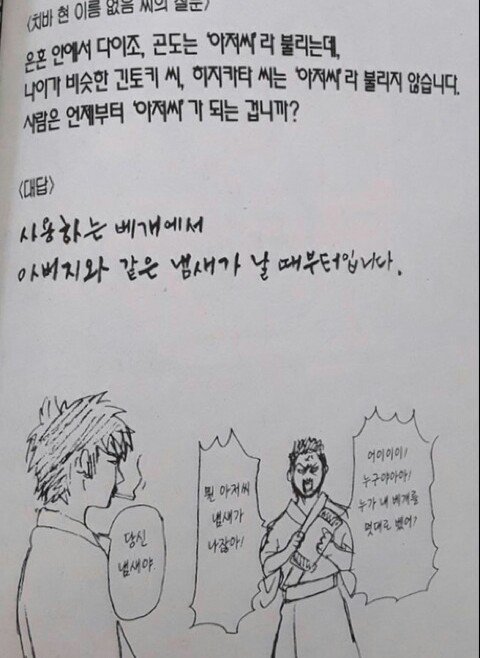 <치바 현 이름 없음 씨의 질문>
은혼 안에서 다이조, 곤도는 '아저씨'라 불리는데,
나이가 비슷한 긴토키 씨, 히지카타 씨는 '아저씨'라 불리지 않습니다.
사람은 언제부터 '아저씨'가 되는 겁니까?
<대답>
사용하는 베개에서
아버지와 같은 냄새가 날 때부터입니다.
어이이이!
누구야아아!
누가 내 베개를
멋대로 벴어?
뭔 아저씨
냄새가
나잖아!
당신
냄새야.